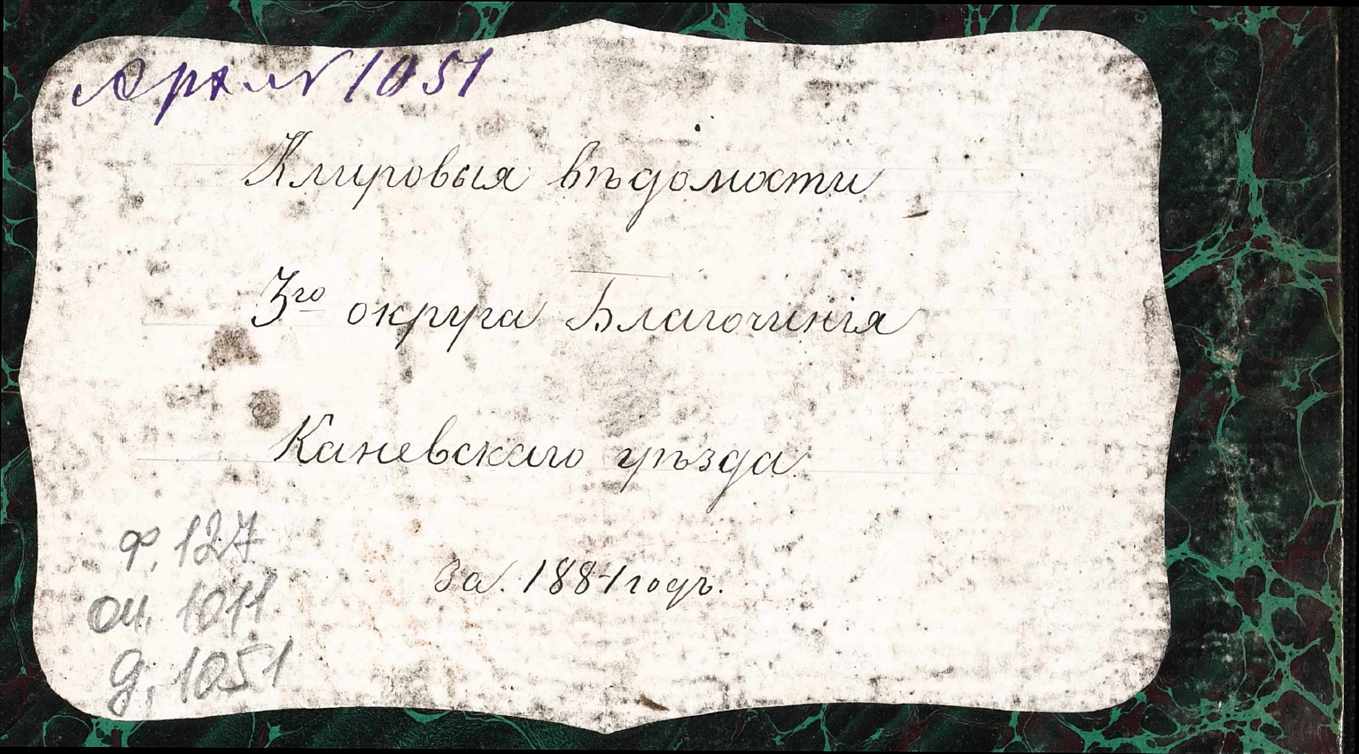 Арх. № 1051
Клировыя вѣдомости
3го округа Благочинія
Каневскаго уѣзда
За. 1881 годъ.
ф. 127
оп. 1011
д. 1051